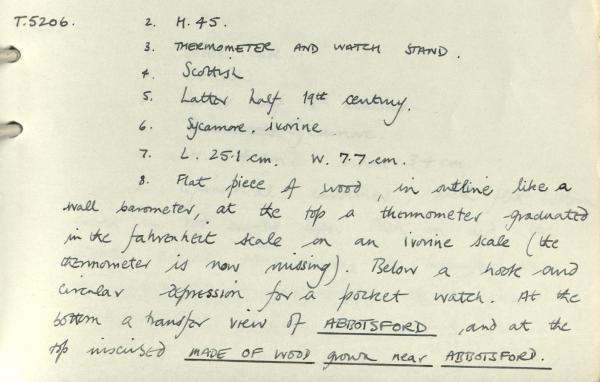 T.5206. 2. H.45.
3. THERMOMETER AND WATCH STAND.
4. Scottish
5. Latter half 19th century.
6. Sycamore, ivorine
7. L. 25.1 cm. W. 7.7 cm.
8. Flat piece of wood, in outline like a
wall barometer, at the top a thermometer graduated
in the fahrenheit scale on an ivorine scale (the
thermometer is now missing). Below a hook and
circular depression for a pocket watch. At the
bottom a transfer view of ABBOTSFORD, and at the
top inscribed MADE OF WOOD grown near ABBOTSFORD.